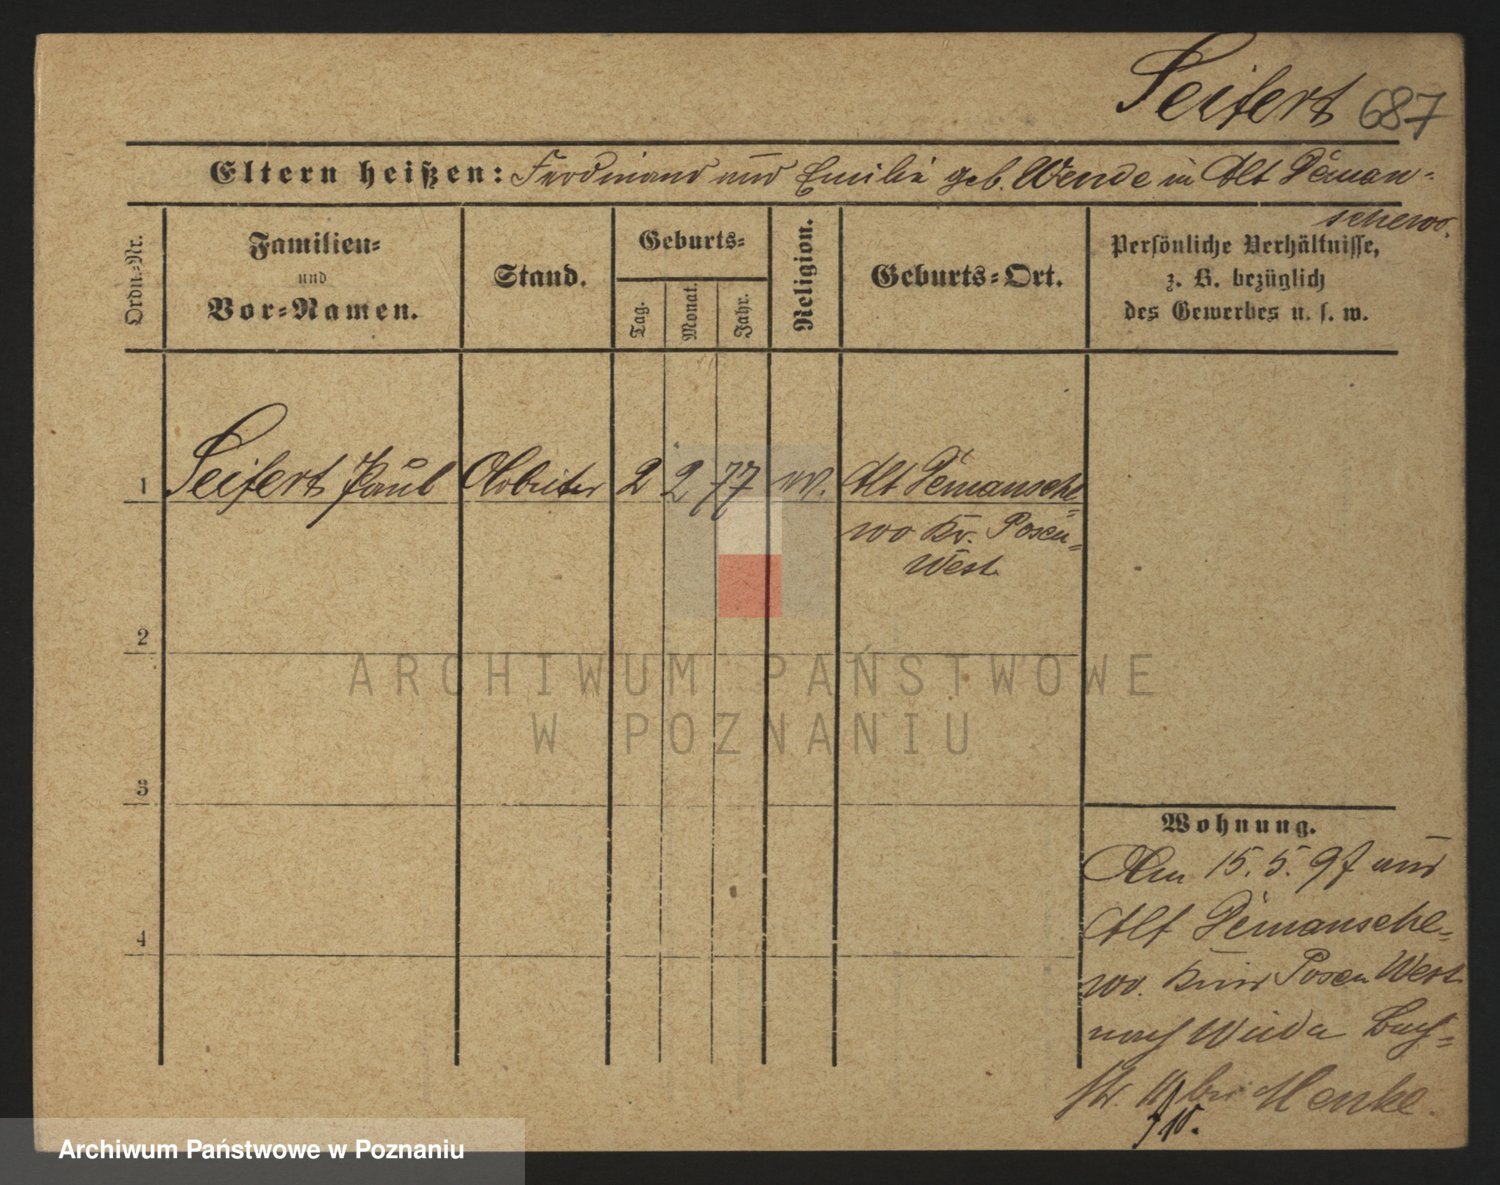 Seifert 687
Eltern heißen: Ferdinand und Emilie geb. Wende in Alt Deman-
schewo.
Ordn.-Nr.
Familien-
und
Vor-Namen.
Stand.
Geburts-
Tag.
Monat.
Jahr.
Religion.
Geburts-Ort.
Persönliche Verhältnisse,
z. B. bezüglich
des Gewerbes u. s. w.
1 Seifert Paul Arbeiter 2 2 77 Alt Demansche-
wo Kr. Posen-
West
2
3
4
Wohnung.
Am 15. 5. 97 aus
Alt Demansche-
wo. Kreis Posen West
nach Wilda Bach-
str. bei Menke.
ARCHIWUM PAŃSTWOWE
W POZNANIU
Archiwum Państwowe w Poznaniu